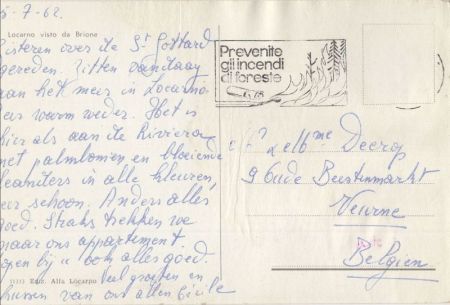 5-7-62.
Locarno visto da Brione
Gisteren over de St Gottard
gereden. Zitten vandaag
aan het meer in Locarno
zeer warm weder. Het is
hier als aan de Riviera
met palmbomen en bloeiende
oleanders in alle kleuren,
zeer schoon. Anders alles
goed. Straks trekken we
naar ons appartement.
Hopen bij u ook alles goed.
Veel groeten en
kussen van ons allen Cécile
Ediz. Alfa Locarno
Prevenite
gli incendi
di foreste
Deeroy
9 Oude Beestenmarkt
Veurne
Belgien